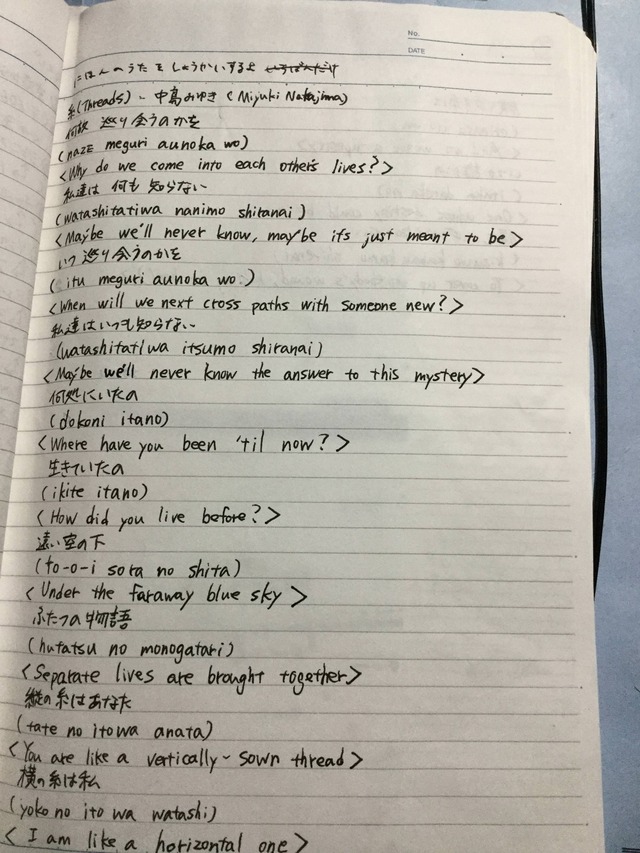 No.
DATE
にほんのうたをしょうかいするよ いちばんだけ
糸(Threads) - 中島みゆき (Miyuki Nakajima)
何故 巡り会うのかを
(naze meguri aunoka wo)
<Why do we come into each other's lives?>
私達は 何も 知らない
(watashitatiwa nanimo shiranai)
<Maybe we'll never know, maybe it's just meant to be>
いつ 巡り会うのかを
(itu meguri aunoka wo)
<When will we next cross paths with someone new?>
私達はいつも知らない
(watashitatiwa itsumo shiranai)
<Maybe we'll never know the answer to this mystery>
何処にいたの
(dokoni itano)
<Where have you been 'til now?>
生きていたの
(ikite itano)
<How did you live before?>
遠い空の下
(to-o-i sora no shita)
<Under the faraway blue sky>
ふたつの物語
(hutatsu no monogatari)
<Separate lives are brought together>
縦の糸はあなた
(tate no itowa anata)
<You are like a vertically-sown thread>
横の糸は私
(yoko no ito wa watashi)
<I am like a horizontal one>